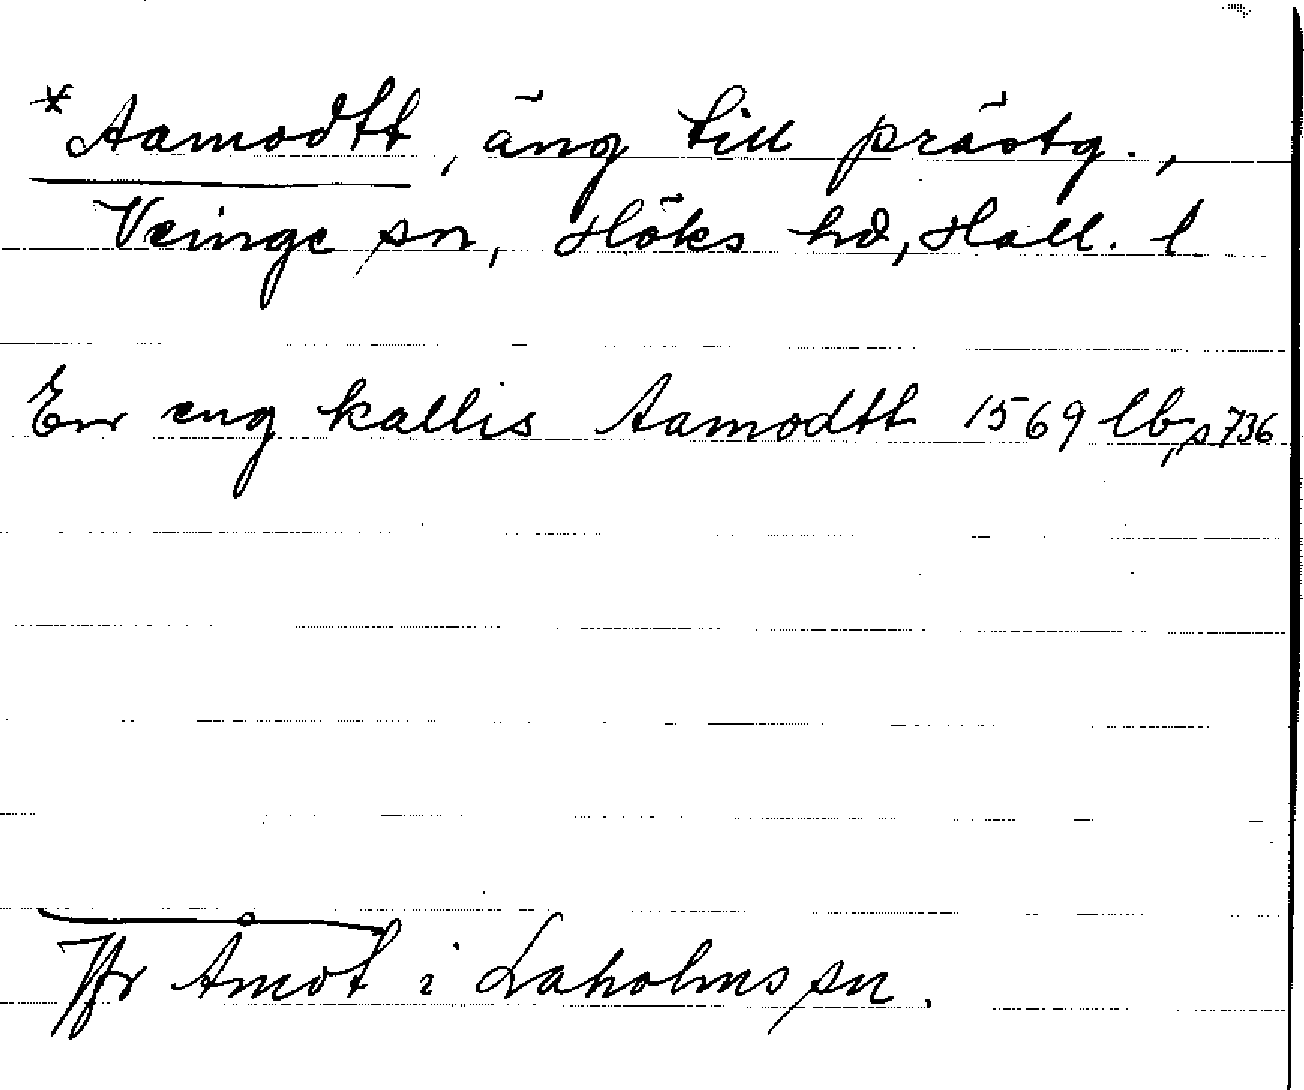 *Aamodtt, äng till prästg.,
Veinge sn, Höks hd, Hall. l
En eng kallis Aamodtt 1569 lb, s 736
Jfr Åmot i Laholms sn.